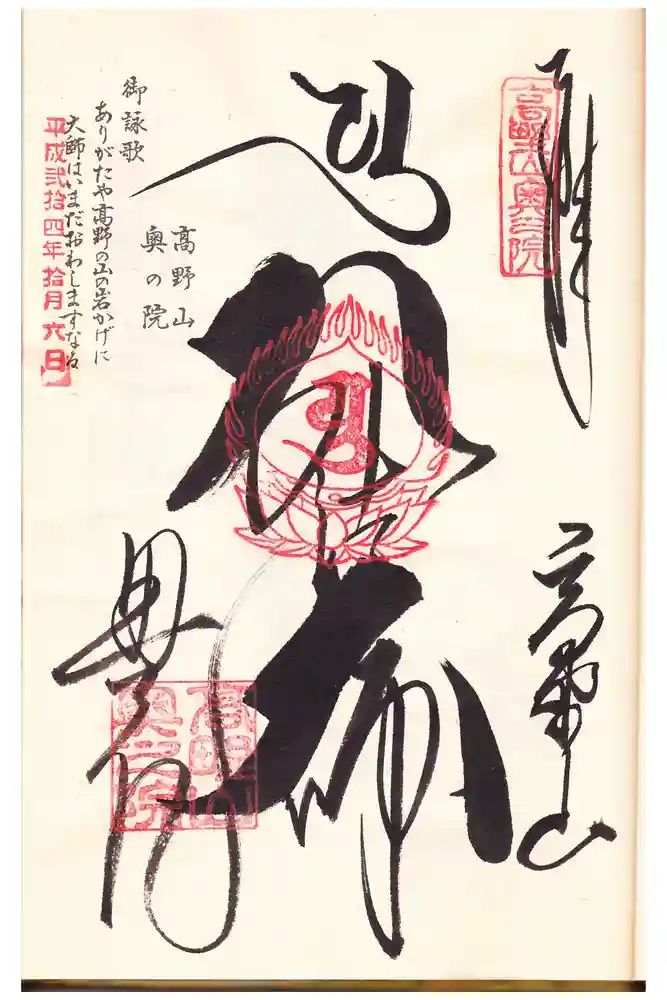 奉拝
高野山奥之院
高野山
高野山
奥の院
御詠歌
ありがたや高野の山の岩かげに
大師はいまだおわしますなる
平成弐拾四年拾月六日
奥之院
高野山
奥之院